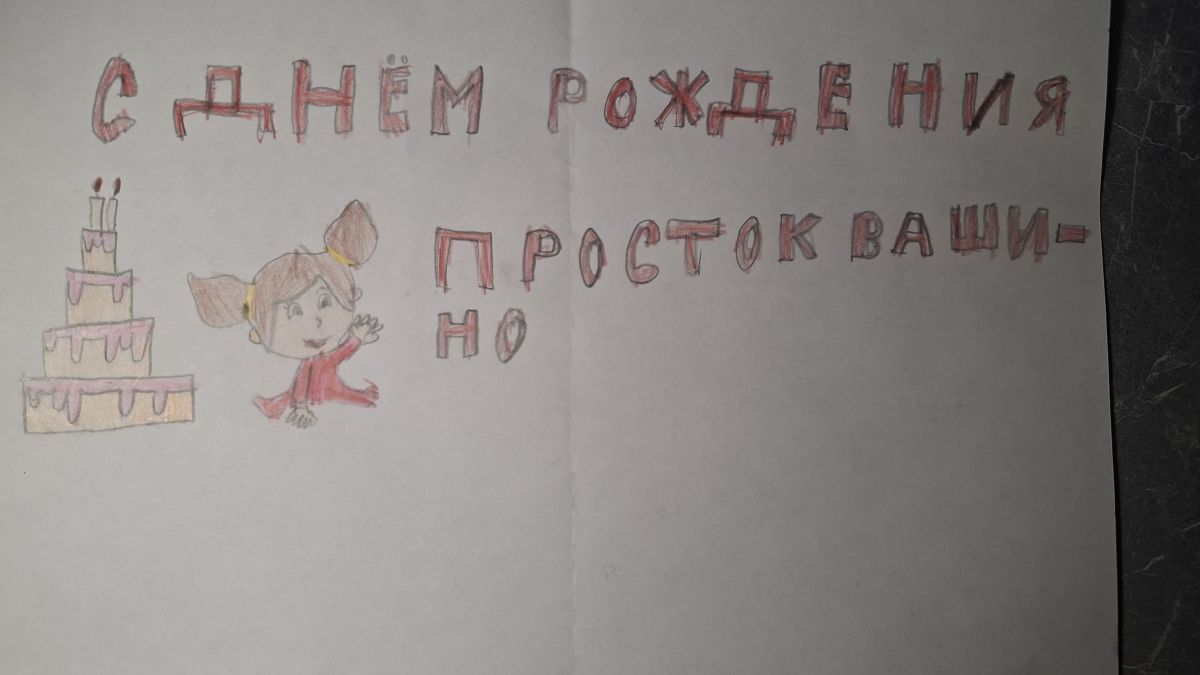 С ДНЁМ РОЖДЕНИЯ
ПРОСТОКВАШИ-
НО